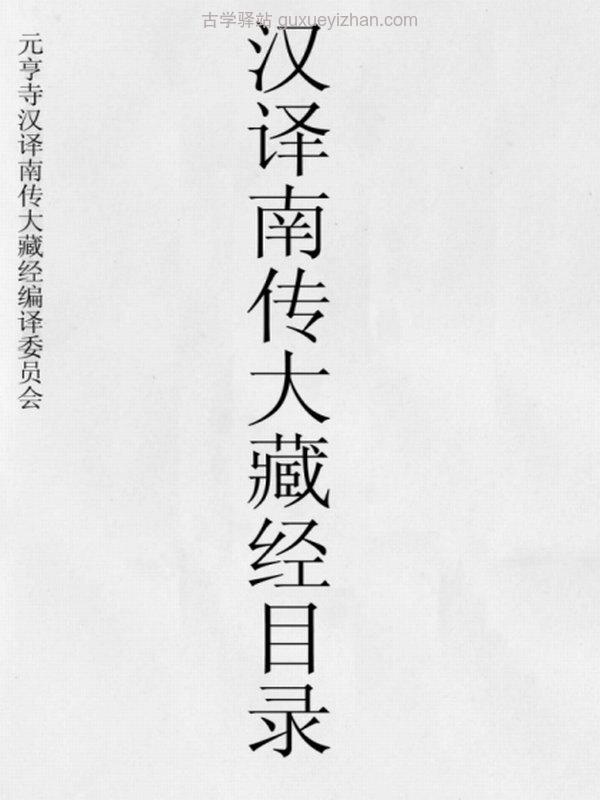 古学驿站 guxueyizhan.com
汉译南传大藏经目录
元亨寺汉译南传大藏经编译委员会